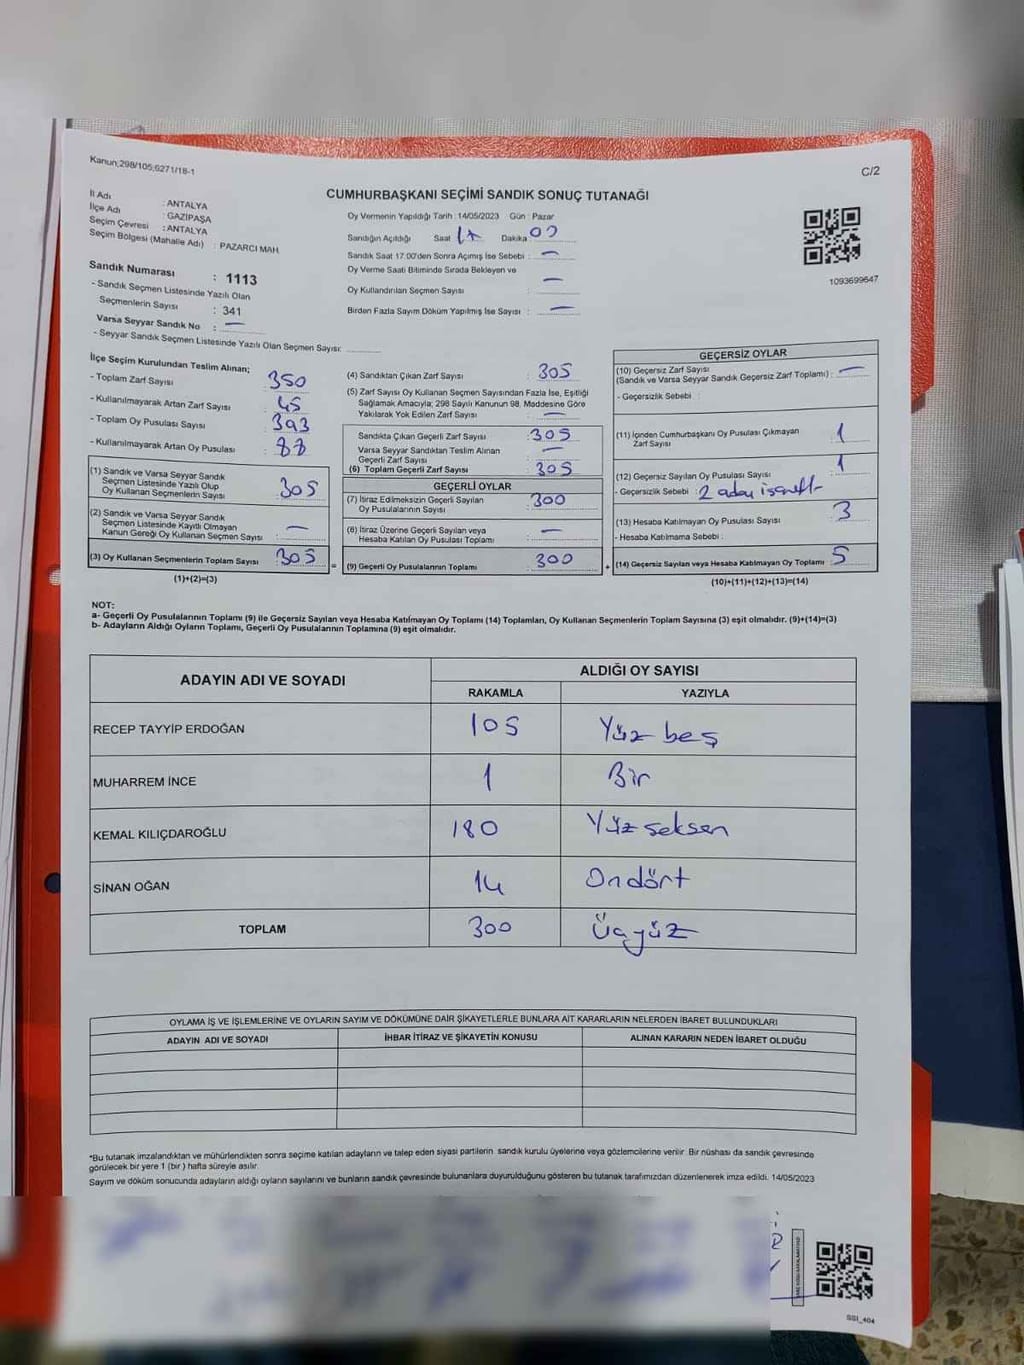 Kanun;298/105;6271/18-1
C/2
CUMHURBAŞKANI SEÇİMİ SANDIK SONUÇ TUTANAĞI
İl Adı : ANTALYA
İlçe Adı : GAZİPAŞA
Seçim Çevresi : ANTALYA
Seçim Bölgesi (Mahalle Adı) : PAZARCI MAH.
Sandık Numarası : 1113
- Sandık Seçmen Listesinde Yazılı Olan
Seçmenlerin Sayısı : 341
Varsa Seyyar Sandık No : —
- Seyyar Sandık Seçmen Listesinde Yazılı Olan Seçmen Sayısı:
Oy Vermenin Yapıldığı Tarih : 14/05/2023 Gün : Pazar
Sandığın Açıldığı Saat Dakika :
Sandık Saat 17.00'den Sonra Açımış İse Sebebi : —
Oy Verme Saati Bitiminde Sırada Bekleyen ve
Oy Kullandırılan Seçmen Sayısı : —
Birden Fazla Sayım Döküm Yapılmış İse Sayısı : —
1093699647
İlçe Seçim Kurulundan Teslim Alınan;
- Toplam Zarf Sayısı 350
- Kullanılmayarak Artan Zarf Sayısı 45
- Toplam Oy Pusulası Sayısı 393
- Kullanılmayarak Artan Oy Pusulası 88
(1) Sandık ve Varsa Seyyar Sandık
Seçmen Listesinde Yazılı Olup
Oy Kullanan Seçmenlerin Sayısı : 305
(2) Sandık ve Varsa Seyyar Sandık
Seçmen Listesinde Kayıtlı Olmayan
Kanun Gereği Oy Kullanan Seçmen Sayısı : —
(3) Oy Kullanan Seçmenlerin Toplam Sayısı : 305
(1)+(2)=(3)
=
(4) Sandıktan Çıkan Zarf Sayısı : 305
(5) Zarf Sayısı Oy Kullanan Seçmen Sayısından Fazla İse, Eşitliği
Sağlamak Amacıyla; 298 Sayılı Kanunun 98. Maddesine Göre
Yakılarak Yok Edilen Zarf Sayısı : —
Sandıkta Çıkan Geçerli Zarf Sayısı : 305
Varsa Seyyar Sandıktan Teslim Alınan
Geçerli Zarf Sayısı : —
(6) Toplam Geçerli Zarf Sayısı : 305
GEÇERLİ OYLAR
(7) İtiraz Edilmeksizin Geçerli Sayılan
Oy Pusulasının Sayısı : 300
(8) İtiraz Üzerine Geçerli Sayılan veya
Hesaba Katılan Oy Pusulası Toplamı : —
(9) Geçerli Oy Pusulalarının Toplamı : 300
+
GEÇERSİZ OYLAR
(10) Geçersiz Zarf Sayısı
(Sandık ve Varsa Seyyar Sandık Geçersiz Zarf Toplamı) : —
- Geçersizlik Sebebi :
(11) İçinden Cumhurbaşkanı Oy Pusulası Çıkmayan
Zarf Sayısı 1
(12) Geçersiz Sayılan Oy Pusulası Sayısı : 1
- Geçersizlik Sebebi : 2 aday
(13) Hesaba Katılmayan Oy Pusulası Sayısı : 3
- Hesaba Katılmama Sebebi :
(14) Geçersiz Sayılan veya Hesaba Katılmayan Oy Toplamı : 5
(10)+(11)+(12)+(13)=(14)
NOT:
a- Geçerli Oy Pusulalarının Toplamı (9) ile Geçersiz Sayılan veya Hesaba Katılmayan Oy Toplamı (14) Toplamları, Oy Kullanan Seçmenlerin Toplam Sayısına (3) eşit olmalıdır. (9)+(14)=(3)
b- Adayların Aldığı Oyların Toplamı, Geçerli Oy Pusulalarının Toplamına (9) eşit olmalıdır.
ADAYIN ADI VE SOYADI
ALDIĞI OY SAYISI
RAKAMLA YAZIYLA
RECEP TAYYİP ERDOĞAN 105 Yüz beş
MUHARREM İNCE 1 Bir
KEMAL KILIÇDAROĞLU 180 Yüz seksen
SİNAN OĞAN 14 Ondört
TOPLAM 300 Üçyüz
OYLAMA İŞ VE İŞLEMLERİNE VE OYLARIN SAYIM VE DÖKÜMÜNE DAİR ŞİKAYETLERLE BUNLARA AİT KARARLARIN NELERDEN İBARET BULUNDUKLARI
ADAYIN ADI VE SOYADI İHBAR İTİRAZ VE ŞİKAYETİN KONUSU ALINAN KARARIN NEDEN İBARET OLDUĞU
*Bu tutanak imzalandıktan ve mühürlendikten sonra seçime katılan adayların ve talep eden siyasi partilerin sandık kurulu üyelerine veya gözlemcilerine verilir. Bir nüshası da sandık çevresinde
görülecek bir yere 1 (bir ) hafta süreyle asılır.
Sayım ve döküm sonucunda adayların aldığı oyların sayılarını ve bunların sandık çevresinde bulunanlara duyurulduğunu gösteren bu tutanak tarafımızdan düzenlenerek imza edildi. 14/05/2023
SSI_404